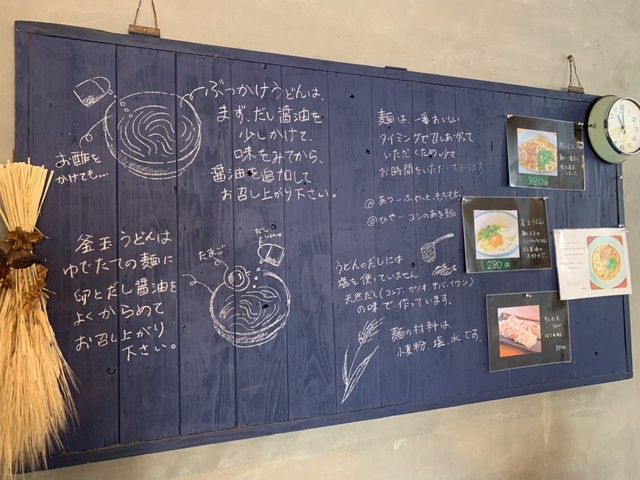 ぶっかけうどんは、
まず、だし醤油を
少しかけて、
味をみてから、
醤油を追加して
お召し上がり下さい。
お酢を
かけても…
釜玉うどんは
ゆでたての麺に
卵とだし醤油を
よくからめて
お召し上がり
下さい。
たまご
だし
しょうゆ
麺は、一番おいしい
タイミングで召しあがって
いただくため、少々
お時間をいただいております
@あつ→ふわっと、もちもち
@ひや→コシのある麺
うどんのだしには
塩を使っていません
天然だし(コンブ・カツオ・サバ・イワシ)
の味で作っています。
麺の材料は、
小麦粉、塩、水です。
380円
釜玉うどん
280円